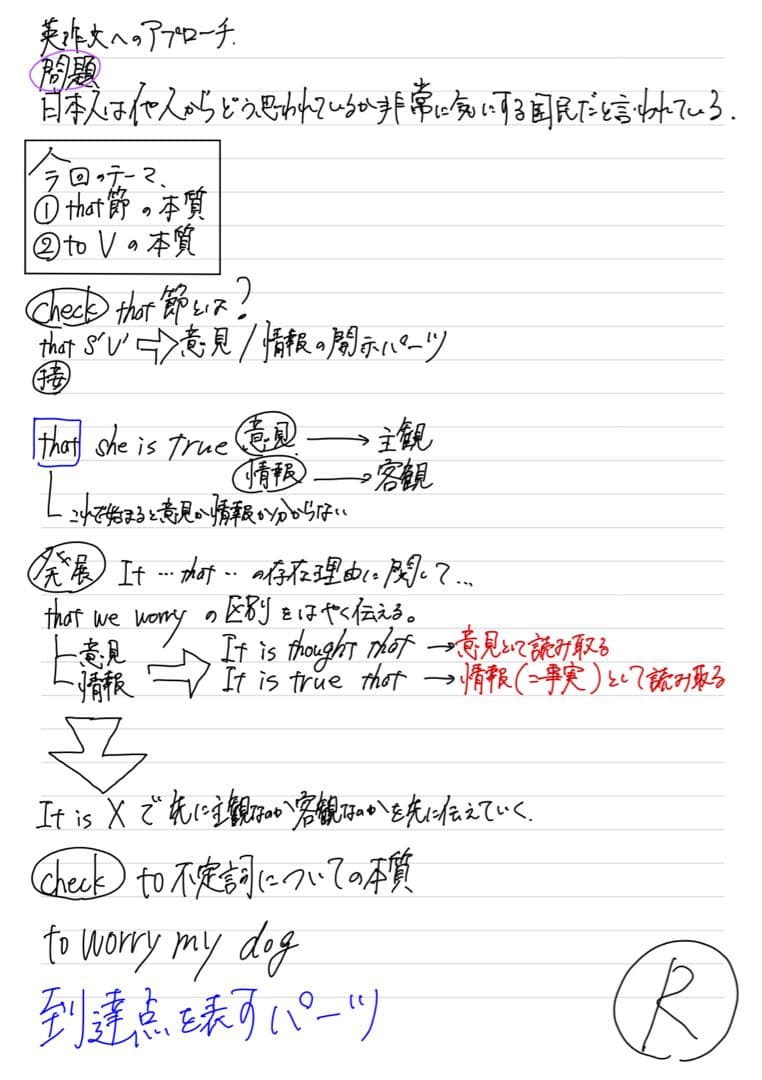 英作文へのアプローチ.
問題
日本人は他人からどう思われているか非常に気にする国民だと言われている.
今回のテーマ、
①that節の本質
②to Vの本質
check that節とは?
that S'V' ⇨ 意見/情報の開示パーツ
接
that she is true 意見 → 主観
情報 → 客観
これで始まると意見か情報か分からない
発展 It …that‥の存在理由に関して…
that we worryの区別をはやく伝える。
意見 It is thought that →意見として読み取る
情報 It is true that →情報(=事実)として読み取る
It is Xで先に主観なのか客観なのかを先に伝えていく.
check to不定詞についての本質
to worry my dog
到達点を表すパーツ
R